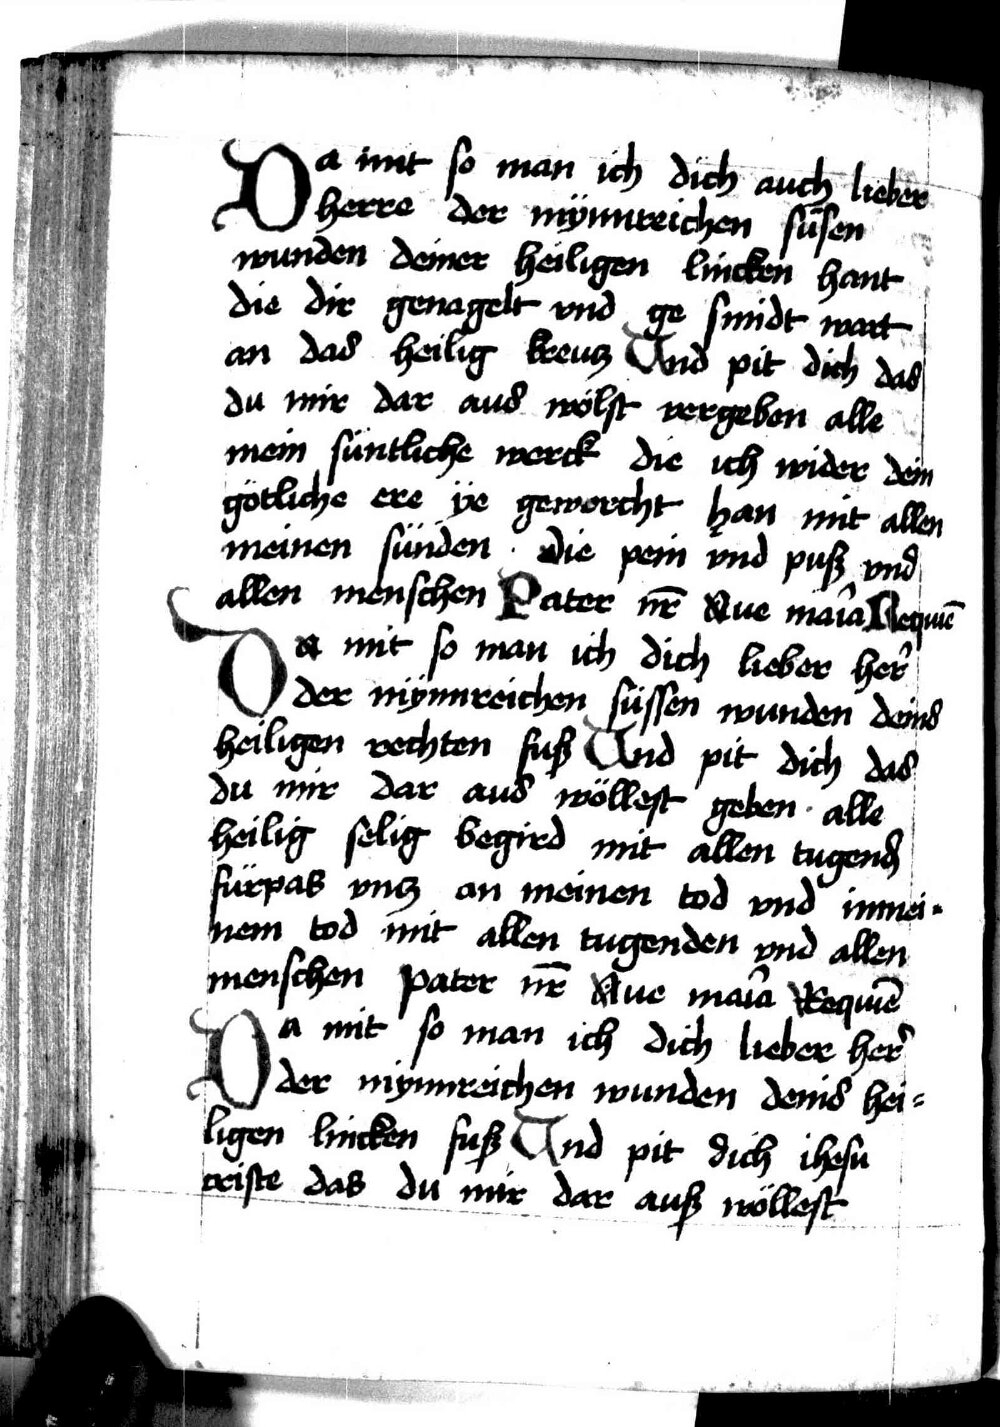 Da mit so man ich dich auch lieber
herre der mÿnnreichen süsen
wunden deiner heiligen lincken hant
die dir genagelt vnd ge smidt wart
an das heilig kreutz Vnd pit dich das
du mir dar aus wölst vergeben alle
mein süntliche werck die ich wider dein
götliche ere ÿe geworcht han mit allen
meinen sünden · die pein vnd puß vnd
allen menschen Pater nr̄ Aue maīa Requiē
Da mit so man ich dich lieber her̄
der mÿnnreichen süssen wunden deins
heiligen rechten fuß Vnd pit dich das
du mir dar aus wöllest geben · alle
heilig selig begird mit allen tugend
fürpas vntz an meinen tod vnd in mei=
nem tod mit allen tugenden vnd allen
menschen Pater nr̄ Aue maīa Requiē
Da mit so man ich dich lieber her̄
der mynnreichen wunden deins hei=
ligen lincken fuß Vnd pit dich ihesu
criste das du mir dar auß wöllest